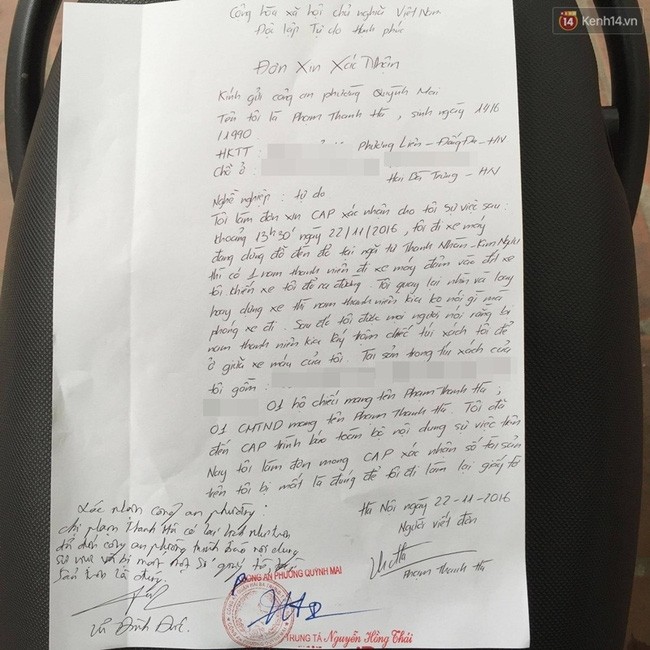 14 Kenh14.vn
Cộng hòa xã hội chủ nghĩa Việt Nam
Độc lập Tự do Hạnh phúc
Đơn Xin Xác Nhận
Kính gửi công an phường Quỳnh Mai
Tên tôi là Phạm Thanh Hà, sinh ngày
/1990
HKTT : Phương Liên - Đống Đa - HN
Chỗ ở : Hai Bà Trưng - HN
Nghề nghiệp : tự do
Tôi làm đơn xin CAP xác nhận cho tôi sự việc sau :
khoảng 13h30' ngày 22/11/2016, tôi đi xe máy
đang dừng đỗ đèn đỏ tại ngã tư Thanh Nhàn - Kim Ngưu
thì có 1 nam thanh niên đi xe máy đâm vào đít xe
tôi khiến xe tôi đổ ra đường. Tôi quay lại nhìn và loay
hoay dựng xe thì nam thanh niên kia ko nói gì mà
phóng xe đi. Sau đó tôi được mọi người nói rằng bị
nam thanh niên kia lấy trộm chiếc túi xách tôi để
ở giữa xe máy của tôi. Tài sản trong túi xách của
tôi gồm :
01 hộ chiếu mang tên Phạm Thanh Hà ;
01 CMTND mang tên Phạm Thanh Hà. Tôi đã
đến CAP trình báo toàn bộ nội dung sự việc trên
Nay tôi làm đơn mong CAP xác nhận số tài sản
trên tôi bị mất là đúng để tôi đi làm lại giấy tờ
Hà Nội ngày 22-11-2016
Người viết đơn
Phạm Thanh Hà
Xác nhận công an phường :
chị Phạm Thanh Hà có lai lịch như trên
đã đến công an phường trình báo nội dung
sự việc và bị mất một số giấy tờ,
sản trên là đúng.
Vũ Đình Đức.
CÔNG AN PHƯỜNG QUỲNH MAI
TRUNG TÁ Nguyễn Hồng Thái